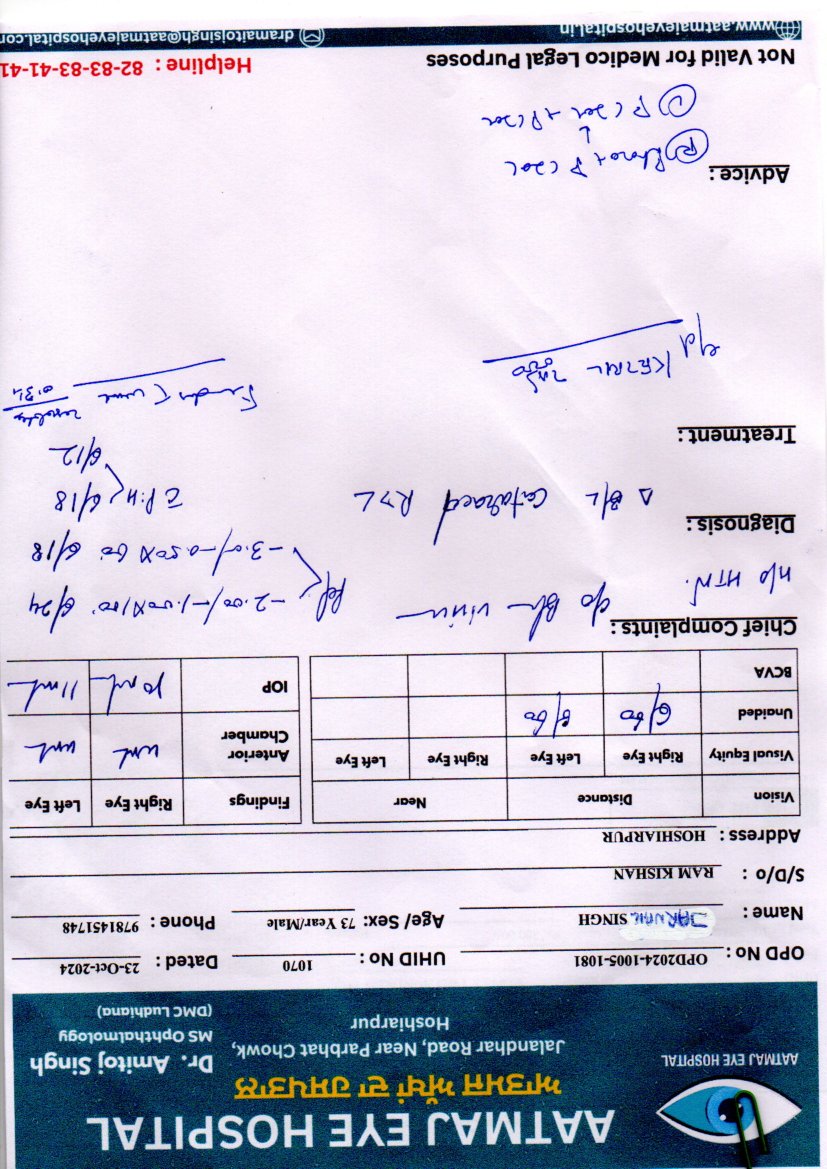 AATMAJ EYE HOSPITAL
ਆਤਮਜ ਅੱਖਾਂ ਦਾ ਹਸਪਤਾਲ
Jalandhar Road, Near Parbhat Chowk,
Hoshiarpur
AATMAJ EYE HOSPITAL
Dr. Amitoj Singh
MS Ophthalmology
(DMC Ludhiana)
OPD No : OPD2024-1005-1081 UHID No : 1070 Dated : 23-Oct-2024
Name : JARNAIL SINGH Age/ Sex: 73 Year/Male Phone : 9781451748
S/D/o : RAM KISHAN
Address : HOSHIARPUR
Vision Distance Near
Visual Equity Right Eye Left Eye Right Eye Left Eye
Unaided 6/60 6/60
BCVA
Findings Right Eye Left Eye
Anterior Chamber
IOP 10 11
Chief Complaints : c/o
H/o HTN.
-2.00/-1.00X100. 6/24
-3.0/-0.50X 60 6/18
Diagnosis :
Δ B/L Cataract R>L
P.H 6/18
6/12
Treatment :
Advice :
Not Valid for Medico Legal Purposes Helpline : 82-83-83-41-41
www.aatmajeyehospital.in dramitojsingh@aatmajeyehospital.com